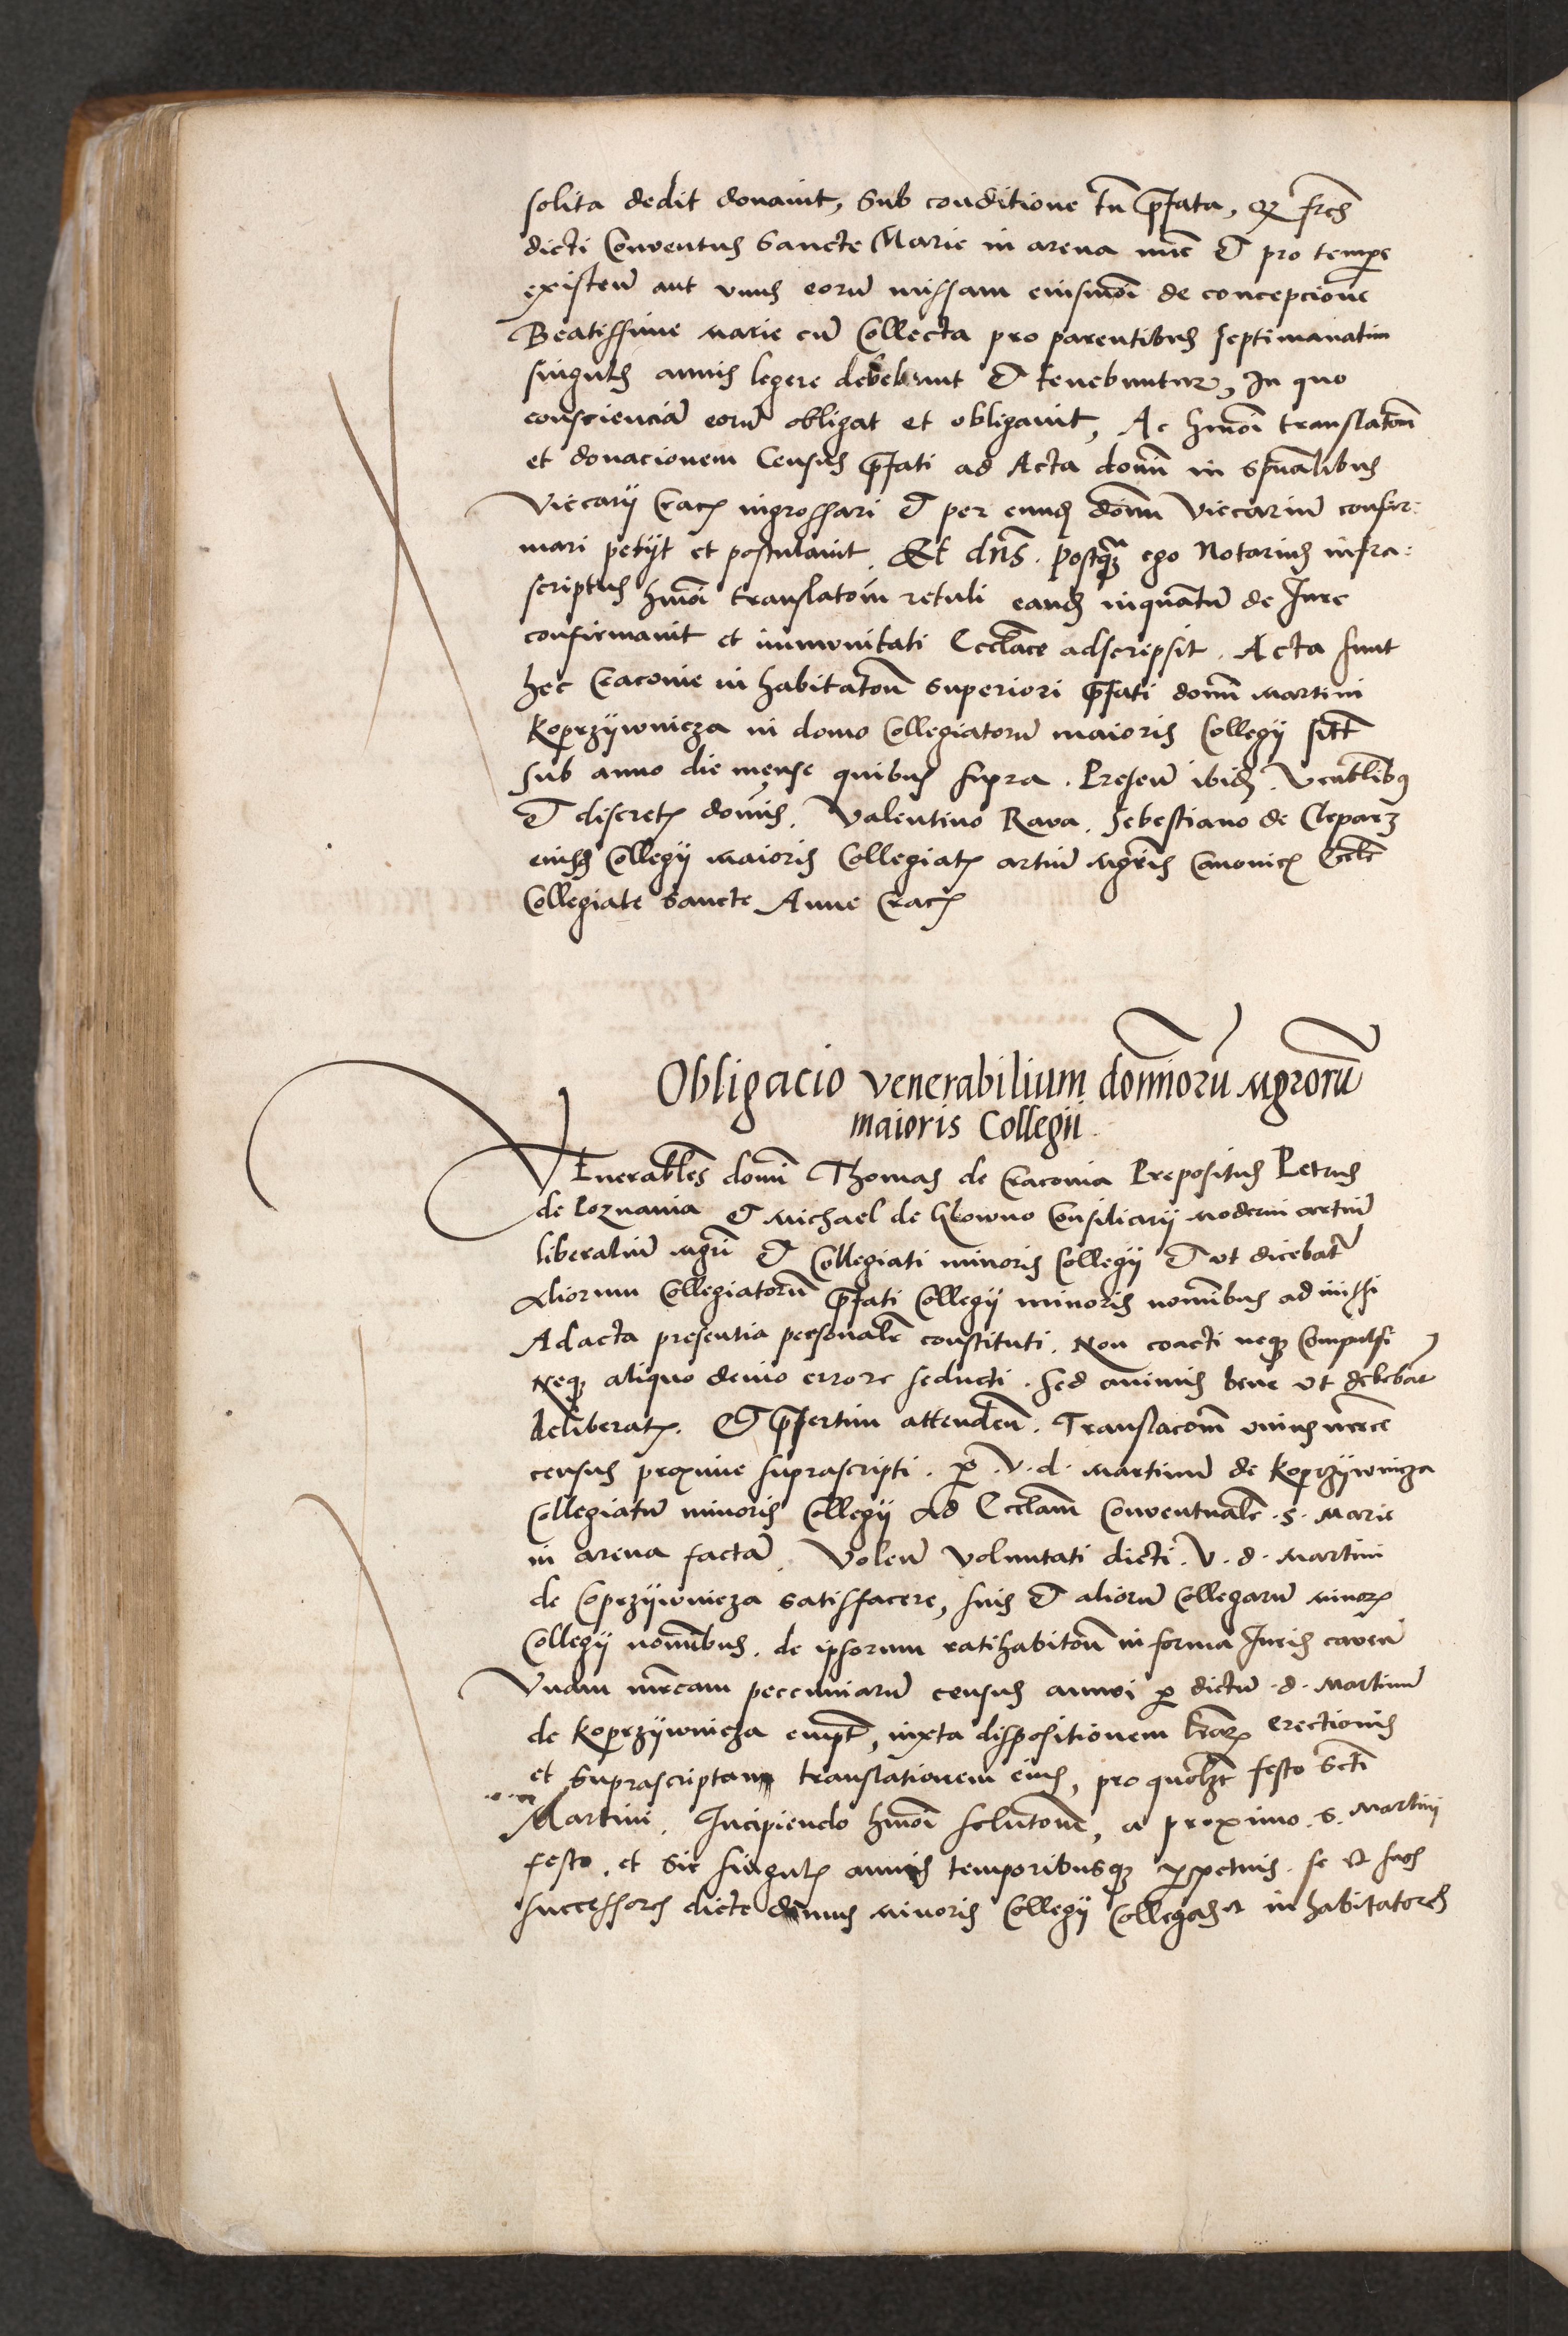 solita dedit donavit, Sub conditione tn̄ p̄fata, qz fr̄es
dicti Conventus Sancte Marie in arena nūc et pro tempe
existeñ aut vnus eorū missam eiusmōi de concepcione
Beatissime Marie cū Collecta pro parentibus septimanatim
singulis annis legere debebunt et tenebuntur, In quo
conscienciā eorū obligat et obligavit, Ac hmōi translatōm̄
et donacionem Census p̄fati ad Acta domī in Sp̄ualibus
Viccarij Crac̄ ingrossari et per eund̄ domī Viccariū confir:
mari petijt et postulavit. Et dn̄s. postq̄ ego Notarius infra:
scriptus hmōi translatōm̄ retuli eand̄ inquantū de Iure
confirmavit et immunitati Eccl̄ace adscripsit. Acta sunt
hec Cracovie in habitatōn̄ superiori p̄fati domī Martini
Koprzijwnicza in domo Collegiatorū maioris Collegij sitt̄
sub anno die mense quibus supra. Preseñ ibid̄. Ven̄blibꝰ
et discret̄ domīs. Valentino Rava. Sebestiano de Cleparz
eiusd̄ Collegij maioris Collegiat̄ artiū Mgr̄is Canonic̄ Eccl̄e
Collegiate Sancte Anne Crac̄
Obligacio venerabilium domīorū Mgrorū
maioris Collegii
VEnerabl̄es domī Thomas de Cracovia Prepositus Petrus
de Poznania et Michael de Glowno Consiliarij moderni artiū
liberaliū Mgr̄i et Collegiati minoris Collegij et ut dicebat̄
Aliorum Collegiatorū p̄fati Collegij minoris nomībus admissi
Ad acta presentia personalr̄ constituti. Non coacti neqꝫ Compulsi
Neqꝫ aliquo devio errore seducti. Sed animis bene ut d̄ebebat̄
deliberat̄. Et p̄sertim attendeñ. Translacōm̄ unius mr̄ce
census proxime suprascripti. p̄. V. d. Martinū de Koprzijwnicza
Collegiatū minoris Collegij Ad Eccl̄am Conventualē. S. Marie
in arena factā. Voleñ voluntati dicti. V. d. Martini
de Coprzijwnicza satisfacere, suis et aliorū Collegarū minor̄
Collegij nomībus. de ipsorum ratihabitōn̄ in forma Iuris caveñ
Unam mr̄cam peccuniarū census annui p̄ dictū. d. Martinū
de Koprzijwnicza empt̄, iuxta dispositionem lr̄ar̄ erectionis
et suprascriptam translationem eius, pro quolz̄t festo Sct̄i
Martini. Incipiendo hmōi solutōnē, a proximo. S. Martinij
festo. et sic singul̄ annis temporibusqꝫ p̄petuis. se et suos
successores dicte domus minoris Collegij Collegas et inhabitatores